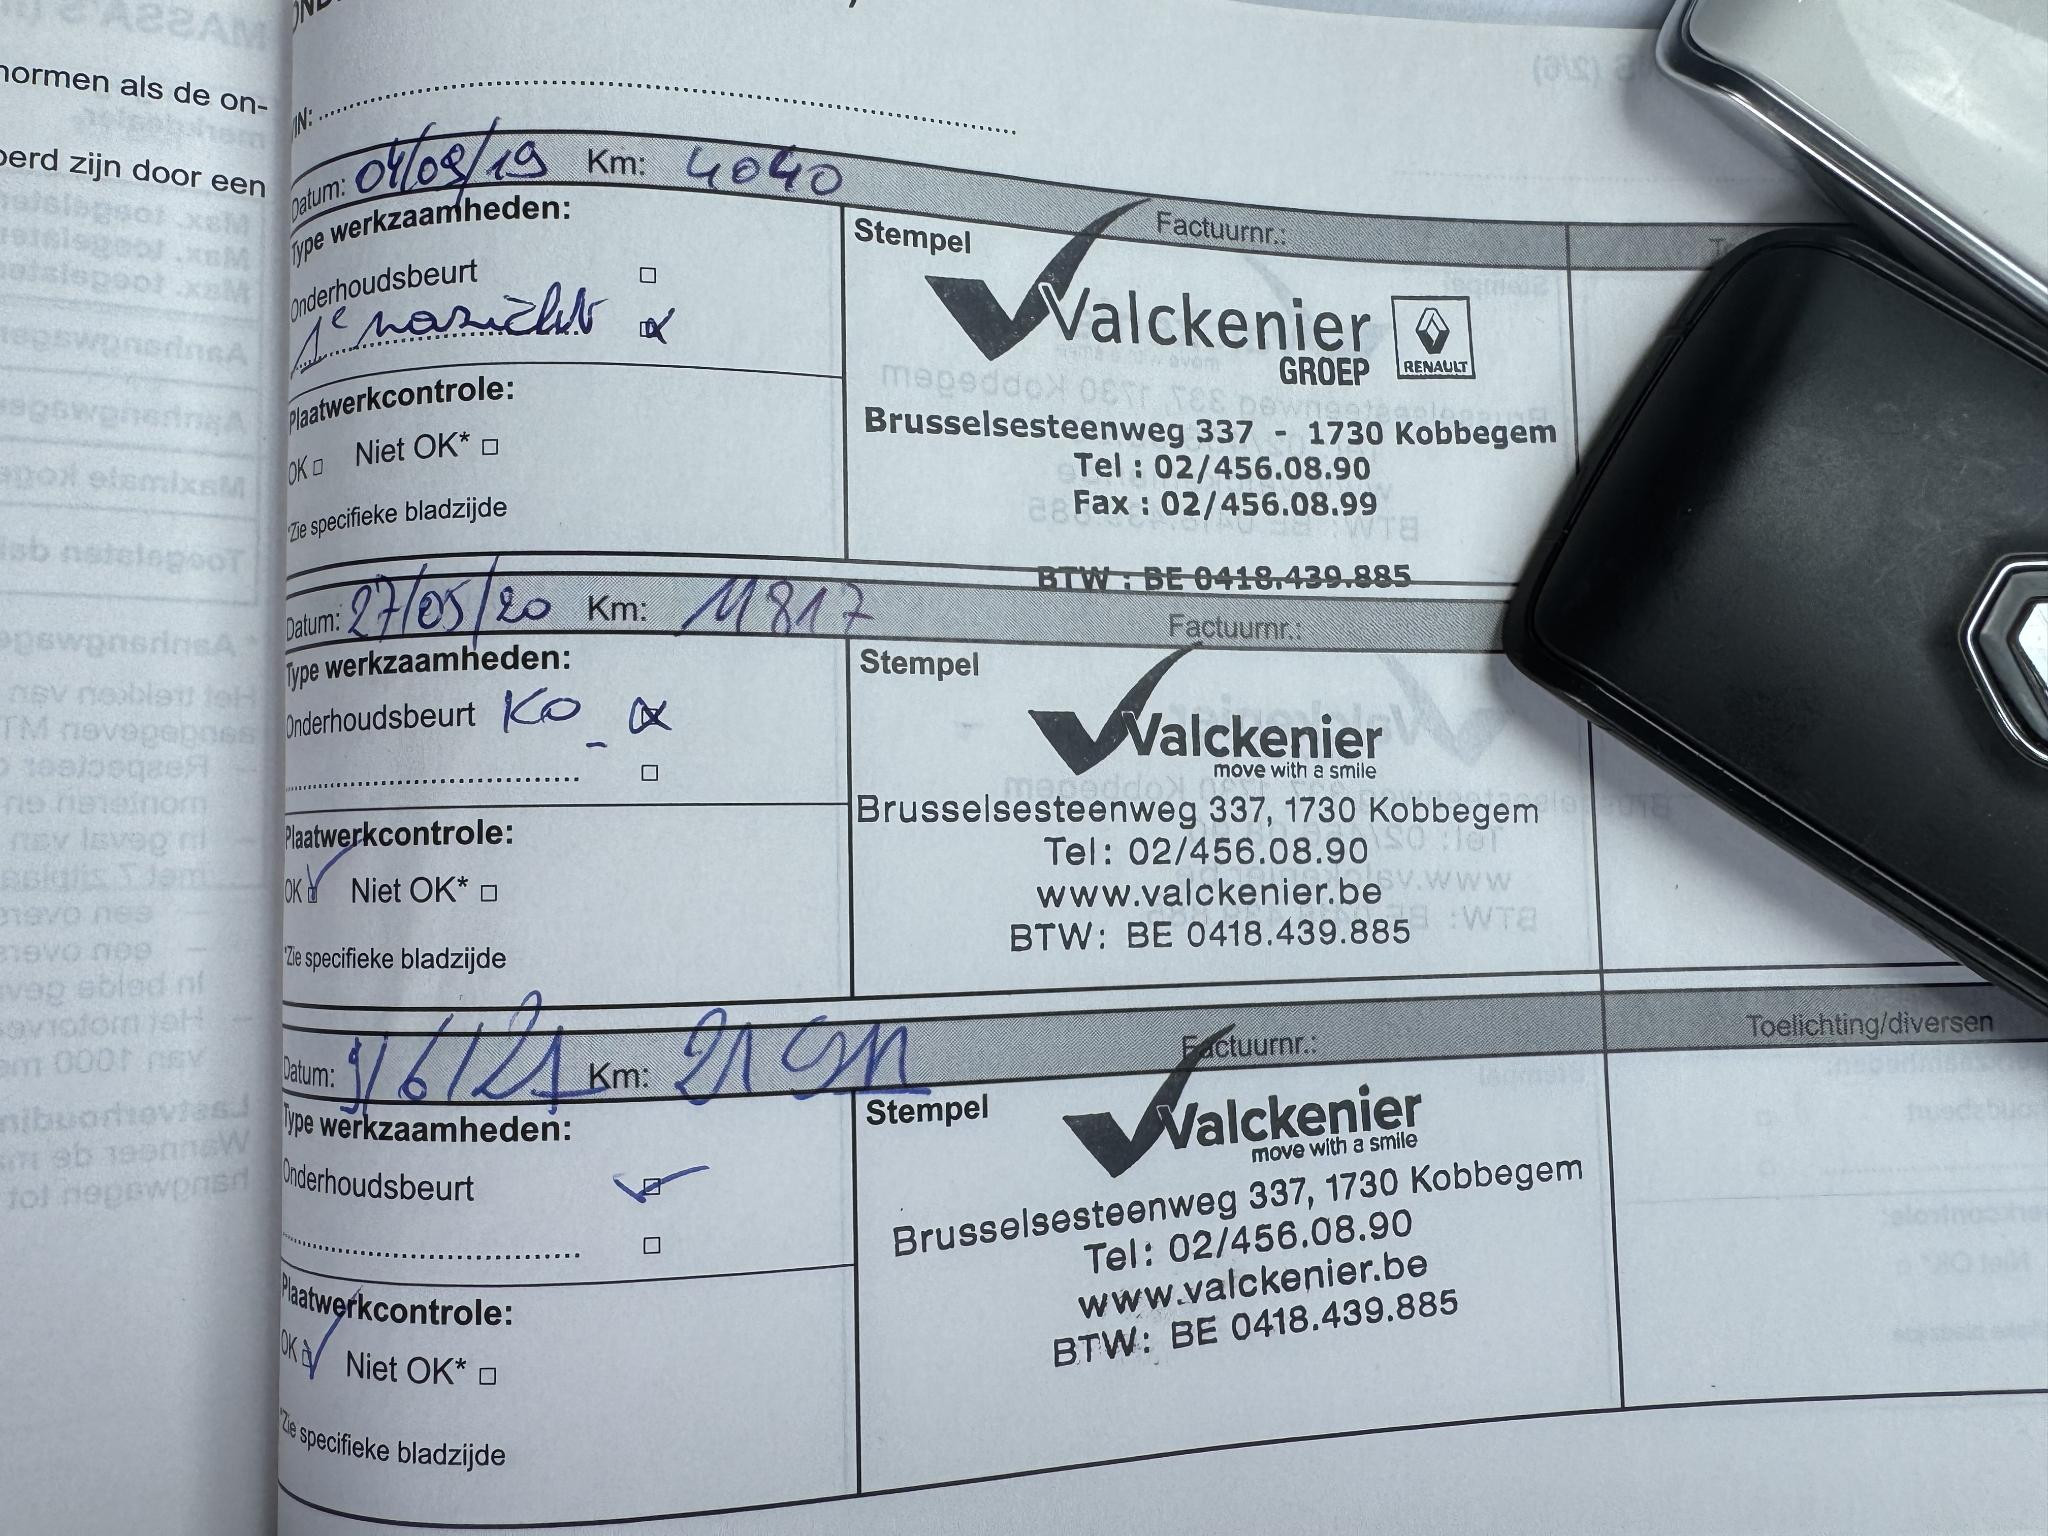 normen als de on-
oerd zijn door een
VIN:
Datum: 04/09/19 Km: 4040
Factuurnr.:
Type werkzaamheden:
Onderhoudsbeurt
1e nazicht
Plaatwerkcontrole:
OK Niet OK*
*Zie specifieke bladzijde
Stempel
Valckenier
GROEP
RENAULT
Brusselsesteenweg 337 - 1730 Kobbegem
Tel : 02/456.08.90
Fax : 02/456.08.99
BTW : BE 0418.439.885
Datum: 27/05/20 Km: 11817
Factuurnr.:
Type werkzaamheden:
Onderhoudsbeurt KO
Plaatwerkcontrole:
OK Niet OK*
*Zie specifieke bladzijde
Stempel
Valckenier
move with a smile
Brusselsesteenweg 337, 1730 Kobbegem
Tel: 02/456.08.90
www.valckenier.be
BTW: BE 0418.439.885
Datum: 9/6/21 Km:
Factuurnr.:
Toelichting/diversen
Type werkzaamheden:
Onderhoudsbeurt
Plaatwerkcontrole:
OK Niet OK*
*Zie specifieke bladzijde
Stempel
Valckenier
move with a smile
Brusselsesteenweg 337, 1730 Kobbegem
Tel: 02/456.08.90
www.valckenier.be
BTW: BE 0418.439.885